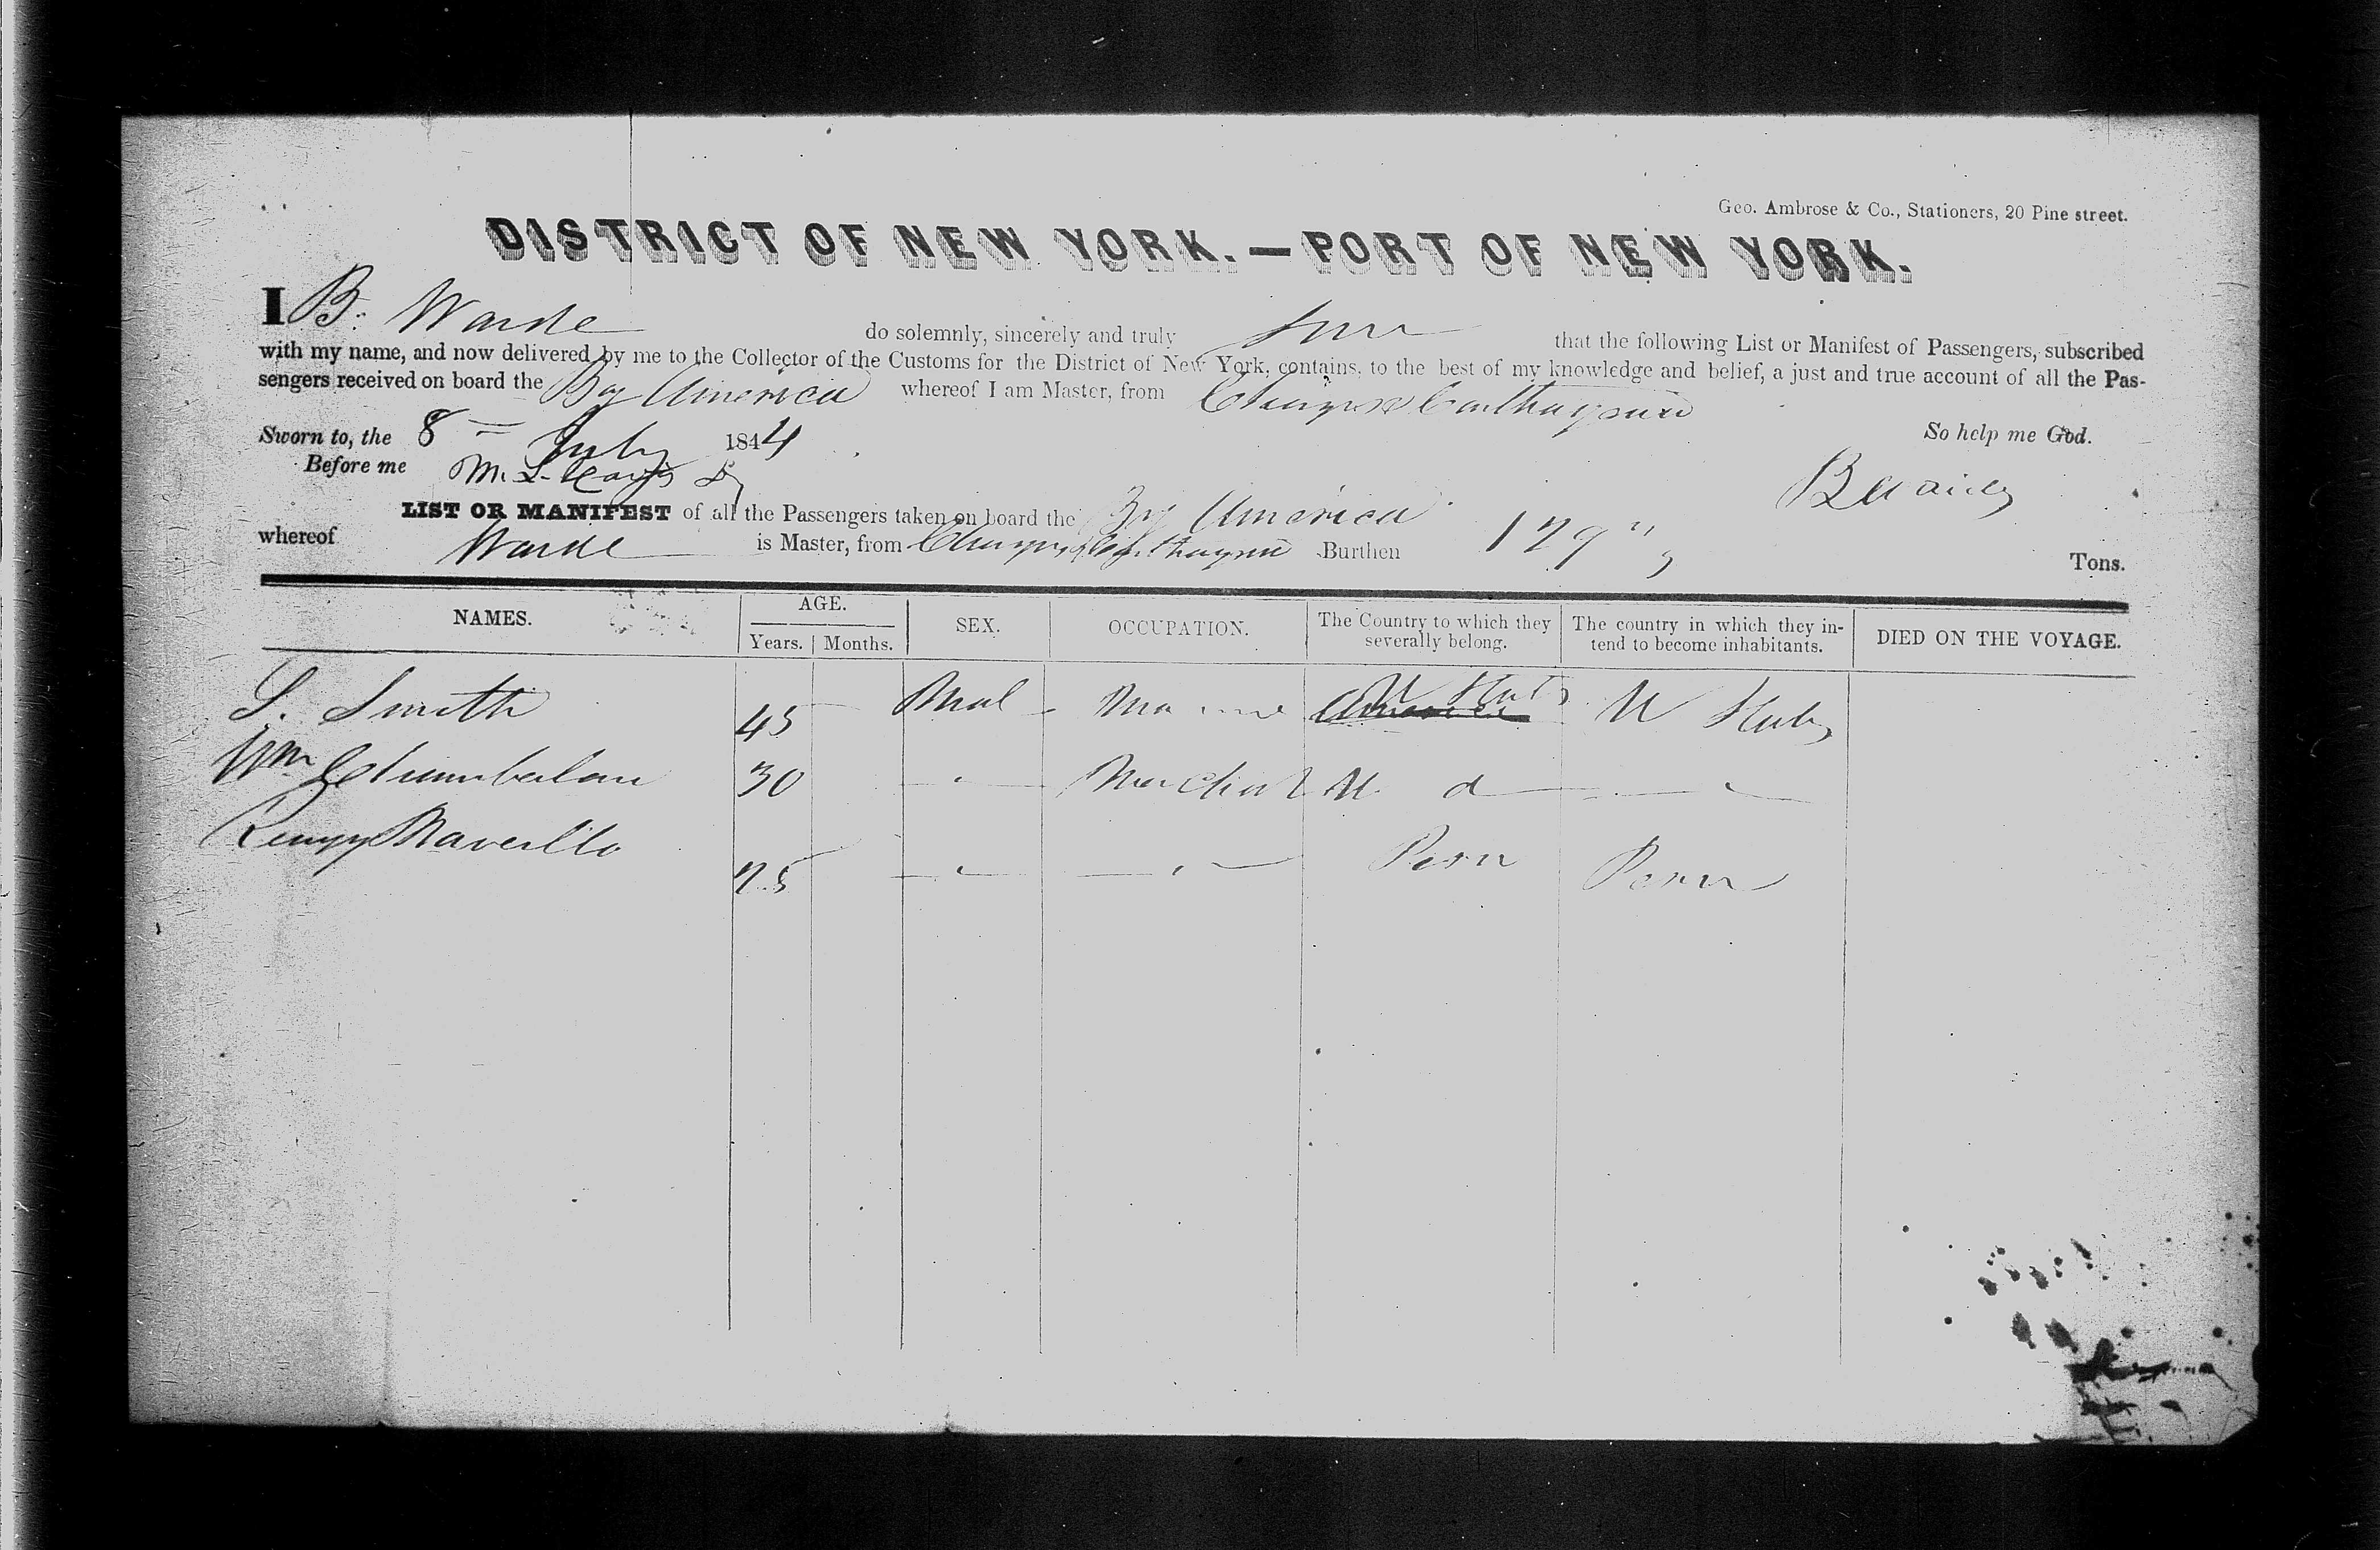 Geo. Ambrose & Co., Stationers, 20 Pine street.
DISTRICT OF NEW YORK.—PORT OF NEW YORK.
I B. Warde do solemnly, sincerely and truly that the following List or Manifest of Passengers, subscribed
with my name, and now delivered by me to the Collector of the Customs for the District of New York, contains, to the best of my knowledge and belief, a just and true account of all the Pas-
sengers received on board the Bg America whereof I am Master, from Chagres Carthagena
So help me God.
Sworn to, the 8 July 1844
Before me
LIST OR MANIFEST of all the Passengers taken on board the Bg America
whereof Warde is Master, from Chagres Carthagena Burthen 179 Tons.
NAMES. AGE. SEX. OCCUPATION. The Country to which they severally belong. The country in which they in-tend to become inhabitants. DIED ON THE VOYAGE.
Years. Months.
S. Smith 45 Mal U Stats U Stats
Wm Chumberlan 30 " Merchant U d "
25 " " Peru Peru